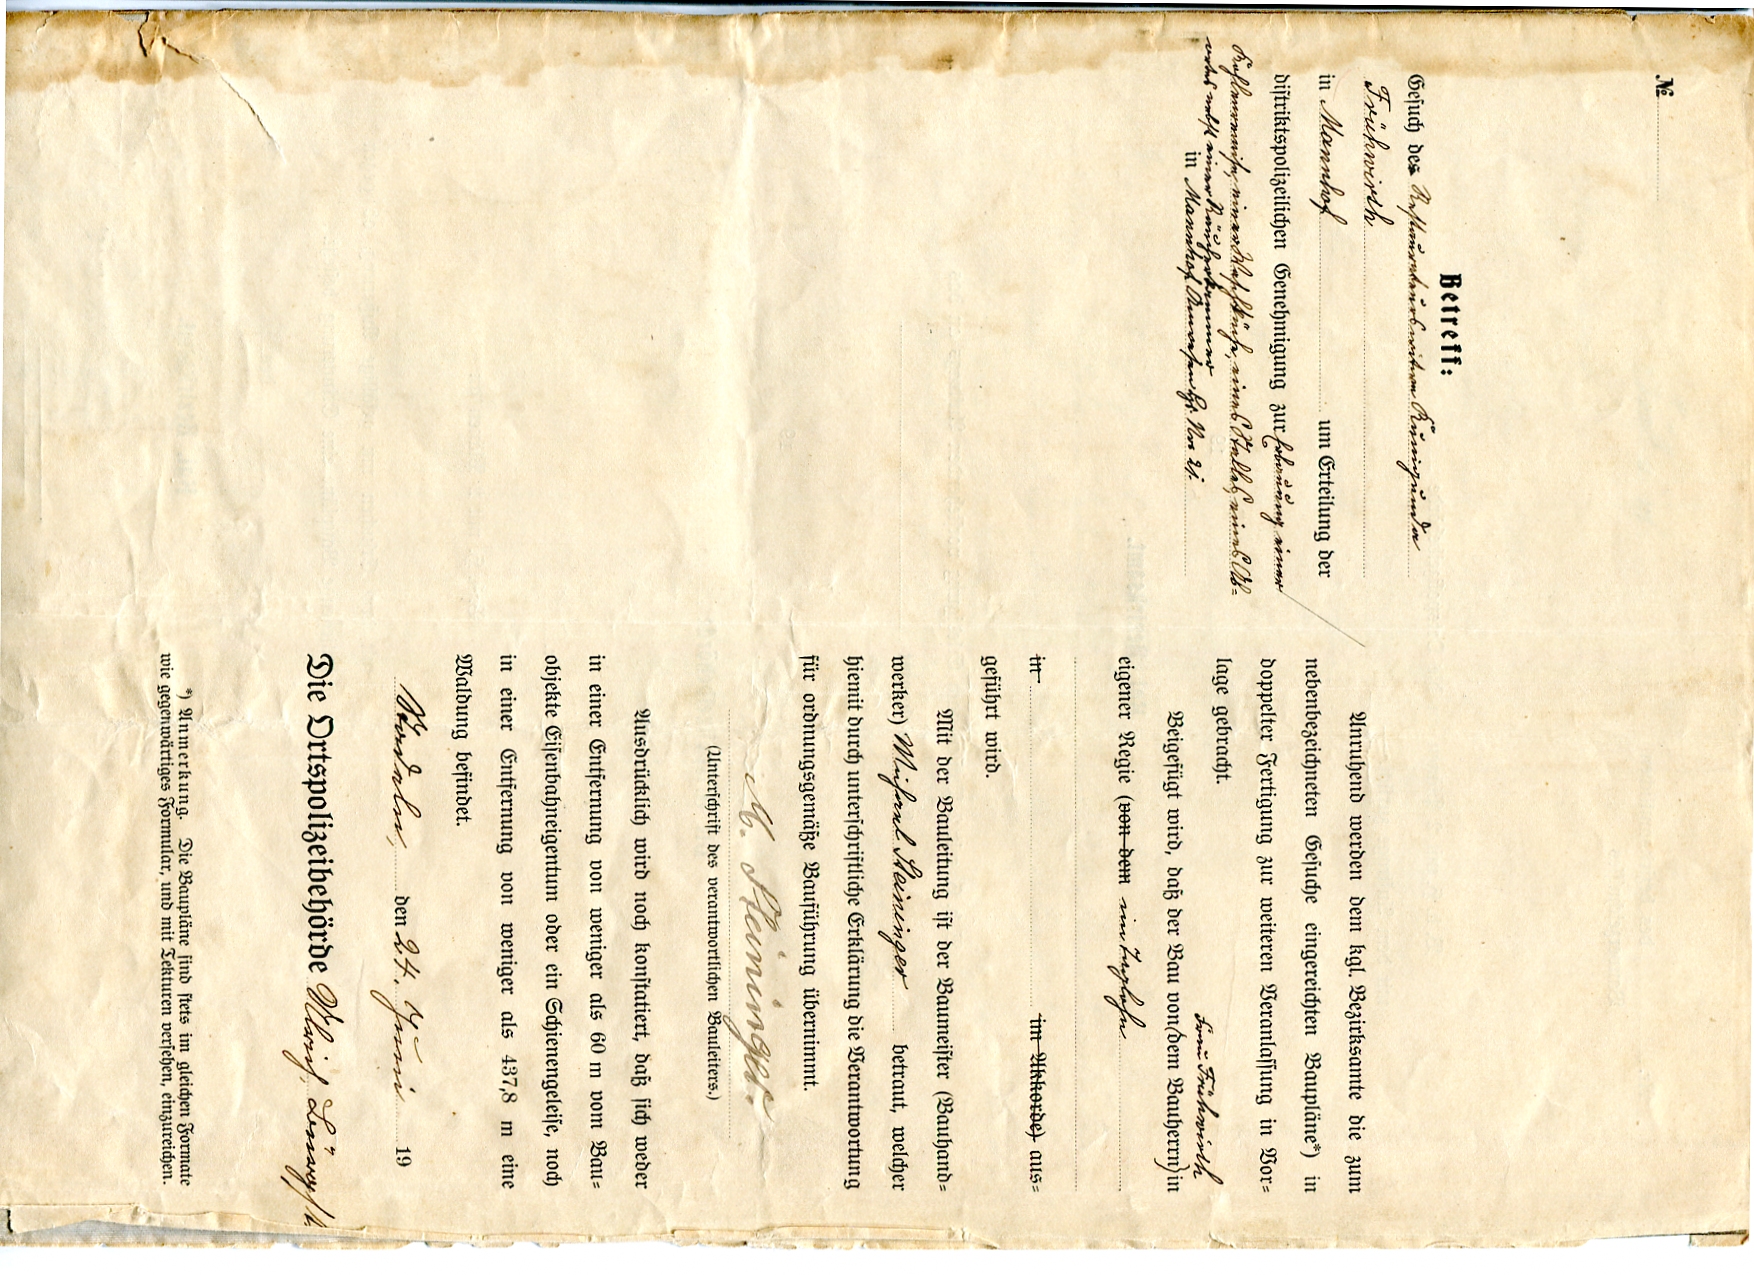 №
Betreff:
Gesuch des Restaurateurswitwe Kunigunda
Frühwirth
in Mannhof um Erteilung der
distriktspolizeilichen Genehmigung zur Erbauung einer
Kohlenremise, einer Waschküche, eines Stalles, eines Ab-
ortes nebst einer Räucherkammer
in Mannhof Anwesen Hs. No 21.
Anruhend werden dem kgl. Bezirksamte die zum
nebenbezeichneten Gesuche eingereichten Baupläne*) in
doppelter Fertigung zur weiteren Veranlassung in Vor-
lage gebracht.
Frau Frühwirth
Beigefügt wird, daß der Bau von (dem Bauherrn) in
eigener Regie (von dem im Taglohn
in im Akkorde) aus-
geführt wird.
Mit der Bauleitung ist der Baumeister (Bauhand-
werker) Michael Steininger betraut, welcher
hiemit durch unterschriftliche Erklärung die Verantwortung
für ordnungsgemäße Bauführung übernimmt.
M. Steininger.
(Unterschrift des verantwortlichen Bauleiters.)
Ausdrücklich wird noch konstatiert, daß sich weder
in einer Entfernung von weniger als 60 m vom Bau-
objekte Eisenbahneigentum oder ein Schienengeleise, noch
in einer Entfernung von weniger als 437,8 m eine
Waldung befindet.
den 24. Juni 19
Die Ortspolizeibehörde
*) Anmerkung. Die Baupläne sind stets im gleichen Formate
wie gegenwärtiges Formular, und mit Tekturen versehen, einzureichen.